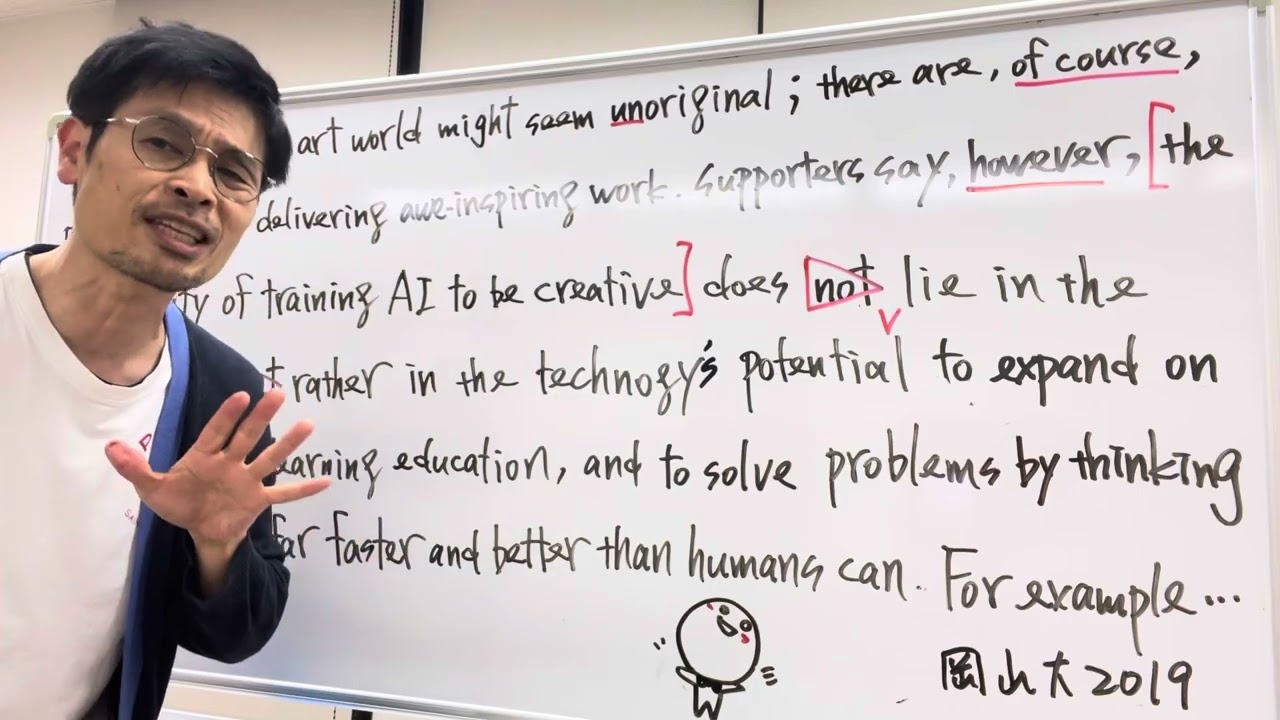 art world might seem unoriginal; there are, of course,
delivering awe-inspiring work. Supporters say, however, [the
ty of training AI to be creative] does not lie in the
t rather in the technogy's potential to expand on
earning education, and to solve problems by thinking
far faster and better than humans can. For example...
岡山大2019